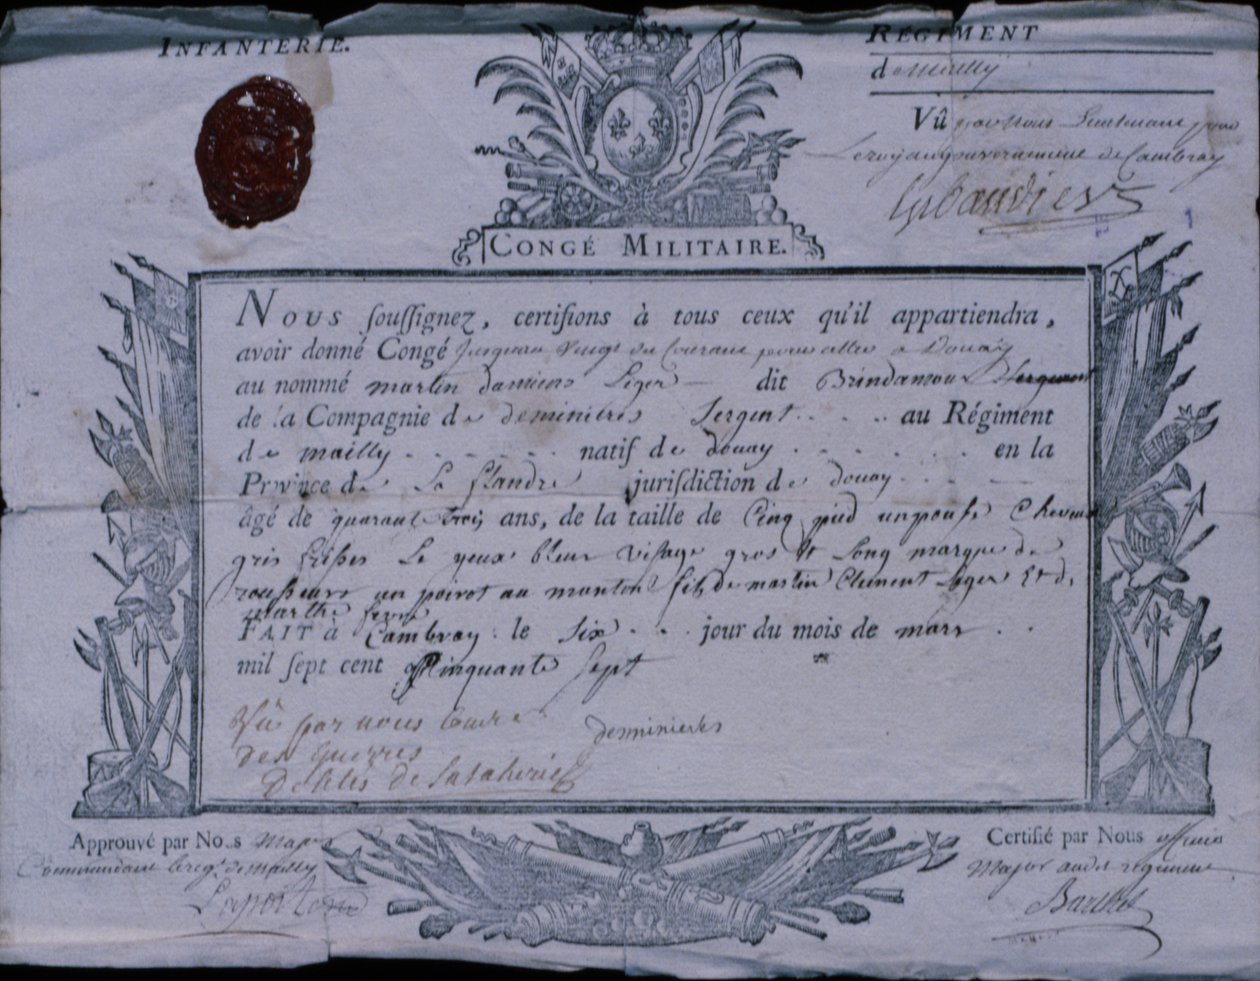 INFANTERIE.
RÉGIMENT
de Mailly
Vû par nous Lieutenant pour
Le roy au gouvernement de Cambray
CONGÉ MILITAIRE.
Nous souſſignez, certiſions à tous ceux qu'il appartiendra,
avoir donné Congé jusqueau vingt du Courant pour aller a Douay
au nommé martin damiens Léger dit Brindamour Sergent
de la Compagnie de deminieres Sergent au Régiment
de mailly natif de douay en la
Province de La flandre juriſdiction de douay
âgé de quarante trois ans, de la taille de Cinq pied un pouse Cheveux
gris Le yeux bleux visage gros et long marque de
rousseurs un poirot au manton fils de martin Clement Léger Et de
marthe
FAIT à Cambray le six jour du mois de mars
mil ſept cent Cinquante Sept
Vû par nous
des guerres
deminieres
Approuvé par Nous Major
Commandant le regt. de mailly
Certifié par Nous officier
Major audit regiment